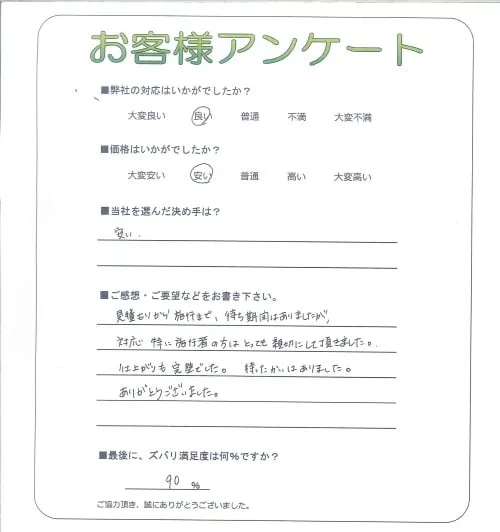 お客様アンケート
■弊社の対応はいかがでしたか?
大変良い 良い 普通 不満 大変不満
■価格はいかがでしたか?
大変安い 安い 普通 高い 大変高い
■当社を選んだ決め手は?
安い.
■ご感想・ご要望などをお書き下さい。
見積もりから施行まで、待ち期間はありましたが、
対応 特に施行者の方はとっても親切にして頂きました。
仕上がりも完璧でした。 待ったかいはありました。
ありがとうございました。
■最後に、ズバリ満足度は何%ですか?
90 %
ご協力頂き、誠にありがとうございました。